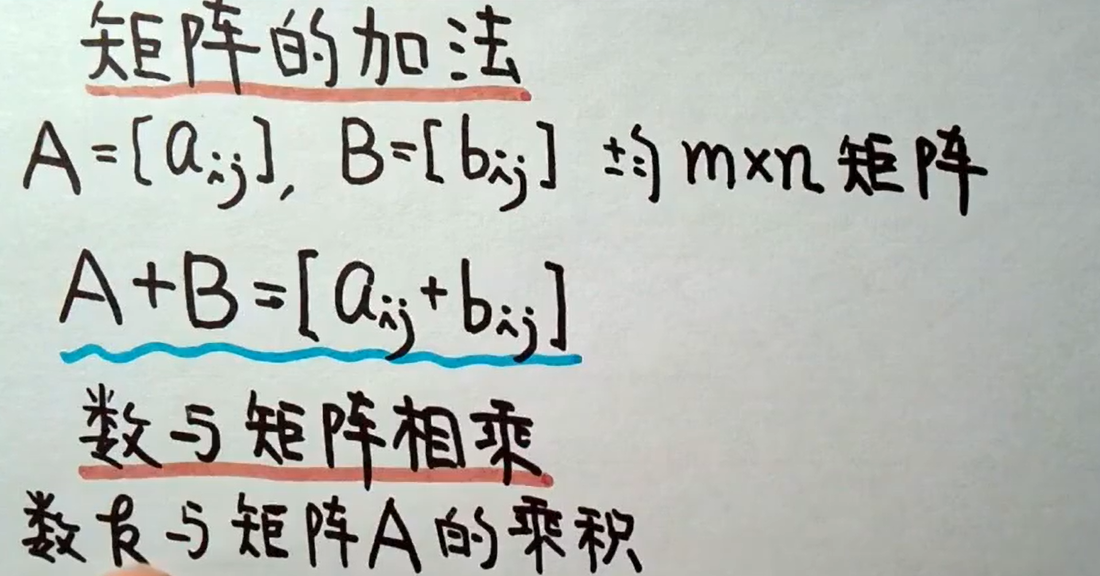 矩阵的加法
A=[aij], B=[bij] 均m×n矩阵
A+B=[aij+bij]
数与矩阵相乘
数k与矩阵A的乘积